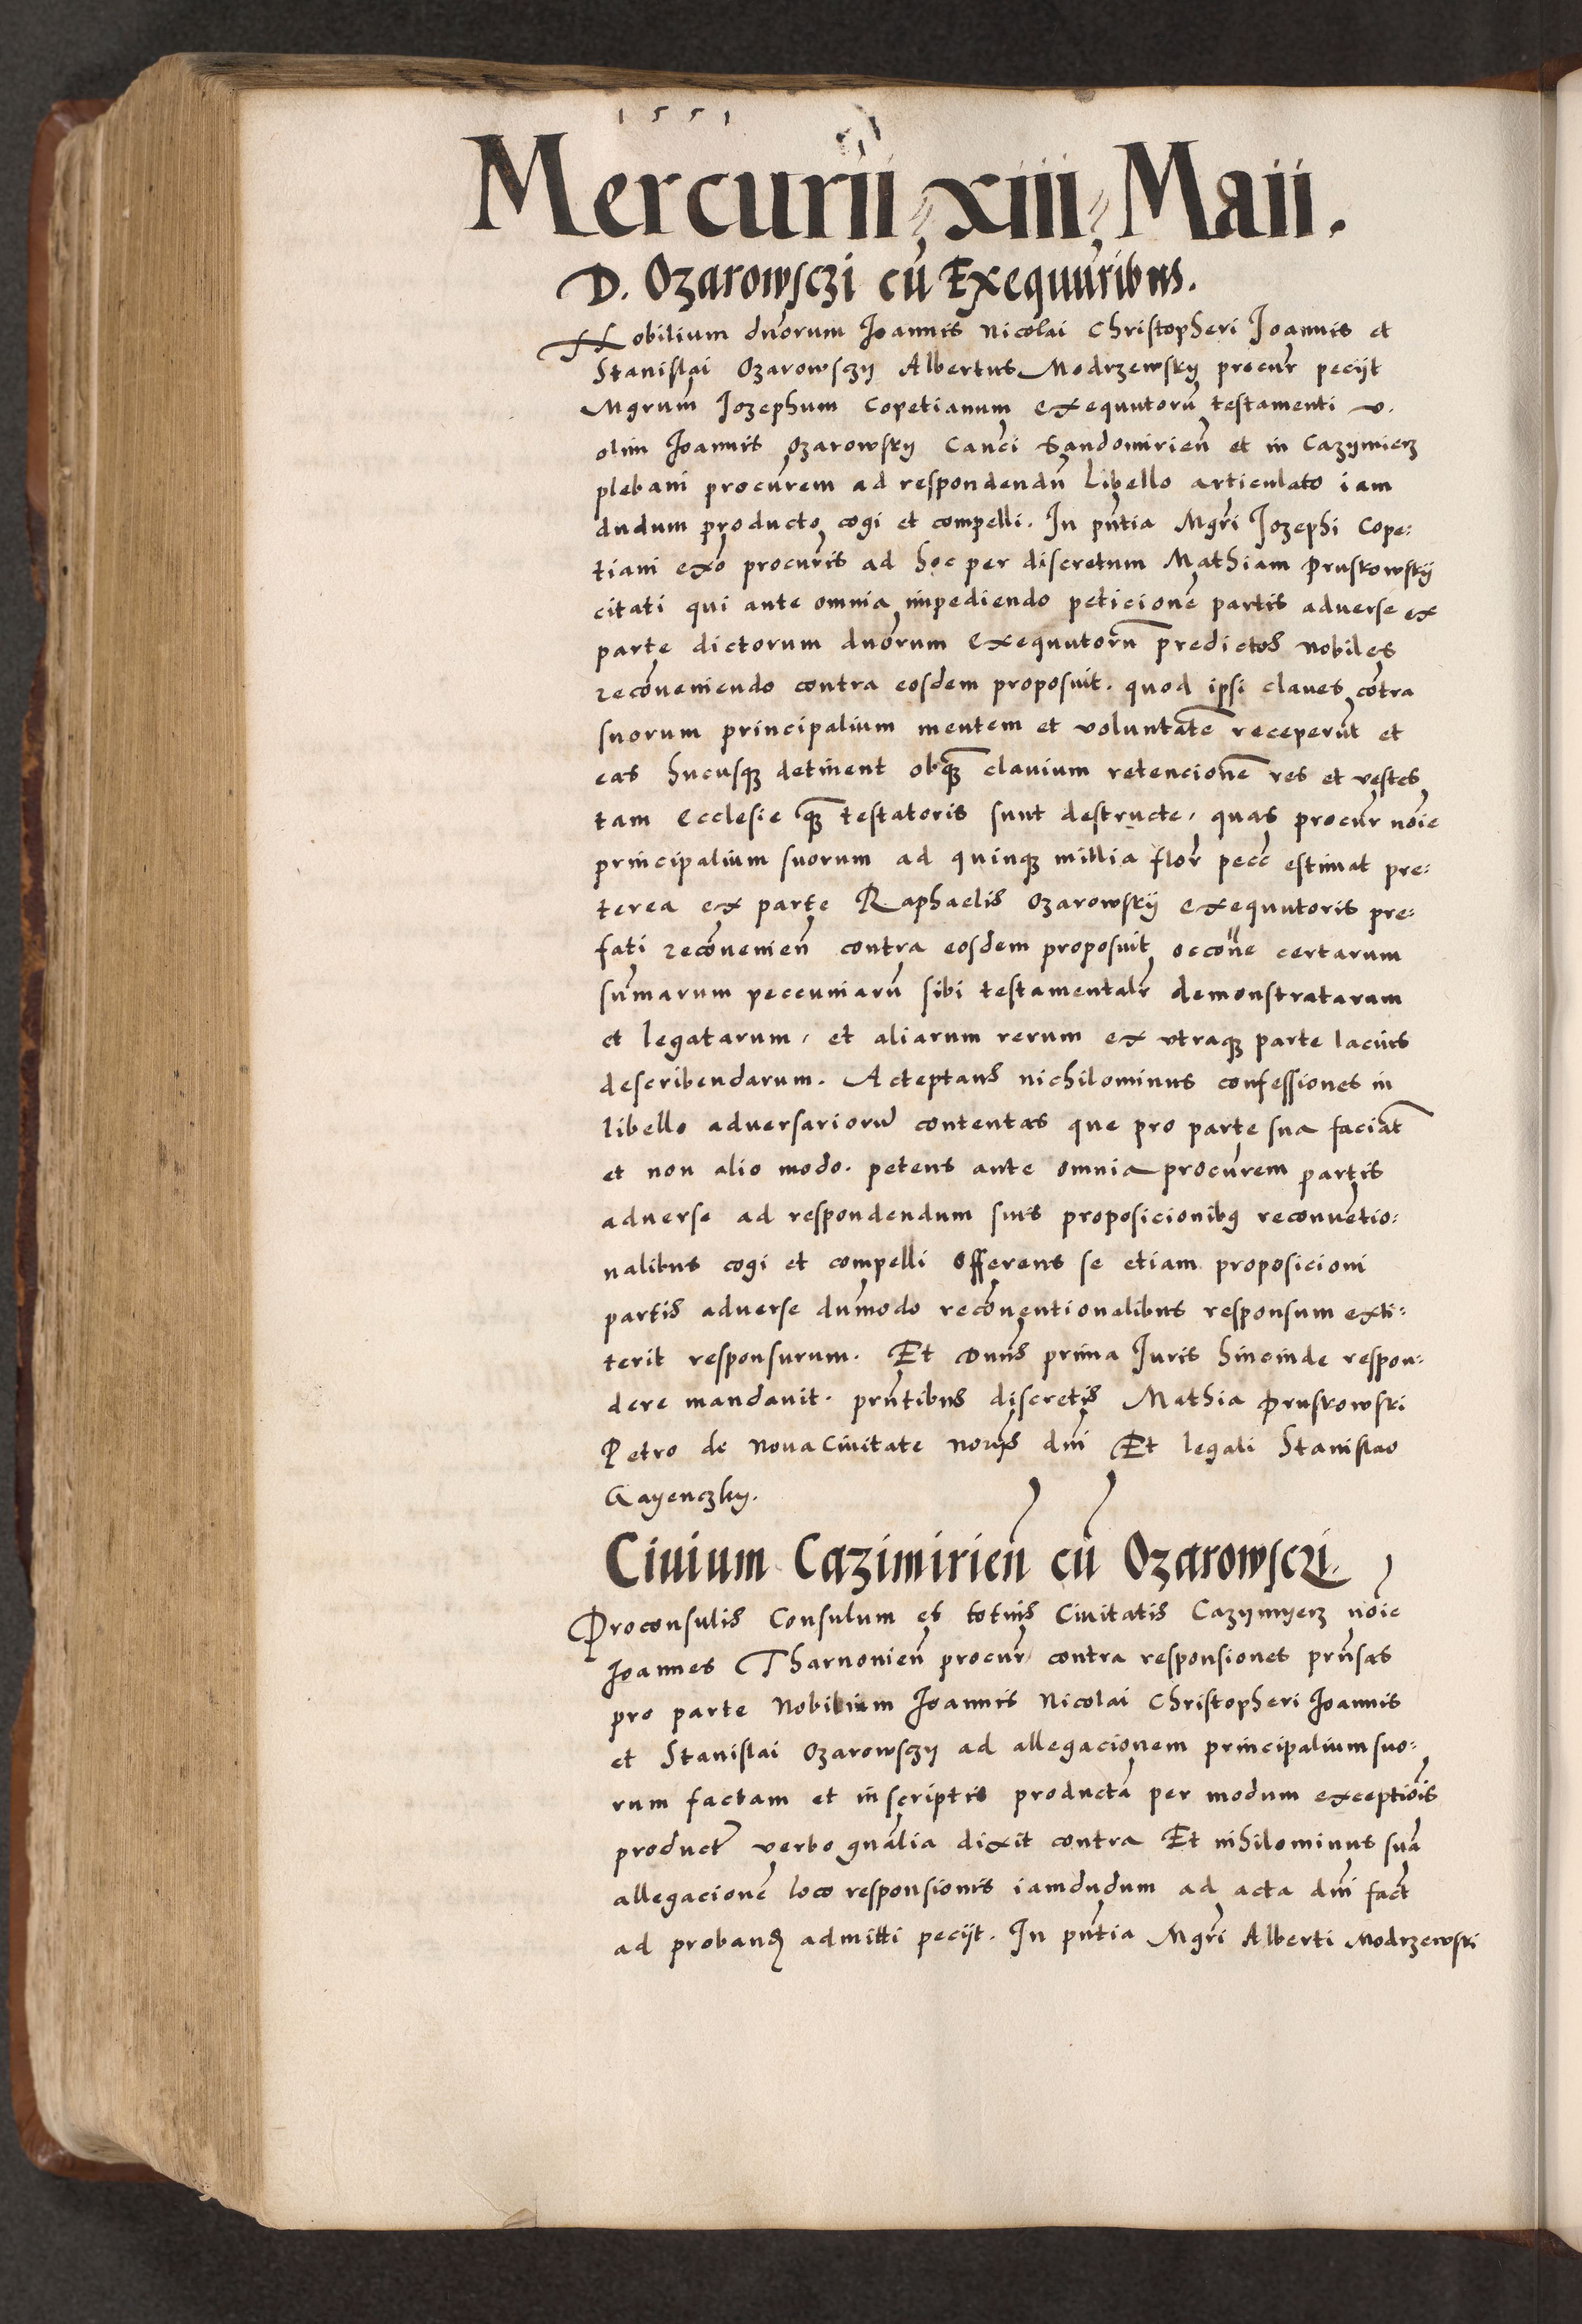 1551
Mercurii, xiii, Maii.
D. Ozarowsczi cū Exequūribus.
Nobilium dnorum Joannis Nicolai Christopheri Joannis et
Stanislai Ozarowsczy Albertus Modrzewsky procūr pecijt
Mgrum Jozephum Copetianum exequutorū testamenti v.
olim Joannis Ozarowsky Canci Sandomirien̄ et in Cazymierz
plebani procurem ad respondendū Libello articulato iam
dudum producto cogi et compelli. In pn̄tia Mgri Jozephi Cope:
tiani exo procuris ad hoc per discretum Mathiam Pruskowsky
citati qui ante omnia impediendo peticionē partis adverse ex
parte dictorum dnorum exequutorū predictos nobiles
reconveniendo contra eosdem proposuit. quod ipsi claves contra
suorum principalium mentem et voluntatē receperūt et
eas hucusqȝ detinent obqȝ clavium retencionē res et vestes
tam Ecclesie qȝ testatoris sunt destructe, quas procūr noie
principalium suorum ad quinqȝ millia flor pecc estimat pre:
terea ex parte Raphaelis Ozarowskij exequutoris pre:
fati reconvenien̄ contra eosdem proposuit occone certarum
sūmarum peccuniarū sibi testamentalr demonstratarum
et legatarum, et aliarum rerum ex utraqȝ parte lacius
describendarum. Acceptans nichilominus confessiones in
libello adversariorū contentas que pro parte sua faciāt
et non alio modo. petens ante omnia procurem partis
adverse ad respondendum suis proposicionibȝ reconventio:
nalibus cogi et compelli offerens se etiam proposicioni
partis adverse dūmodo reconventionalibus responsum exti:
terit responsurum. Et Dnns prima Juris hincinde respon:
dere mandavit. prn̄tibus discretis Mathia Pruskowski
Petro de Nova Civitate notȳs dni Et legali Stanislao
Gayenczky.
Civium Cazimirien̄ cū Ozarowsczi.
Proconsulis Consulum et totius Civitatis Cazymyerz noie
Joannes Tharnovien̄ procūr contra responsiones prn̄sas
pro parte Nobilium Joannis Nicolai Christopheri Joannis
et Stanislai Ozarowsczy ad allegacionem principalium suo:
rum factam et in scriptis productā per modum exceptiōis
product verbo gnālia dixit contra Et nihilominus suā
allegacionē loco responsionis iamdudum ad acta dni fact
ad proband admitti pecijt. In pn̄tia Mgri Alberti Modrzewski